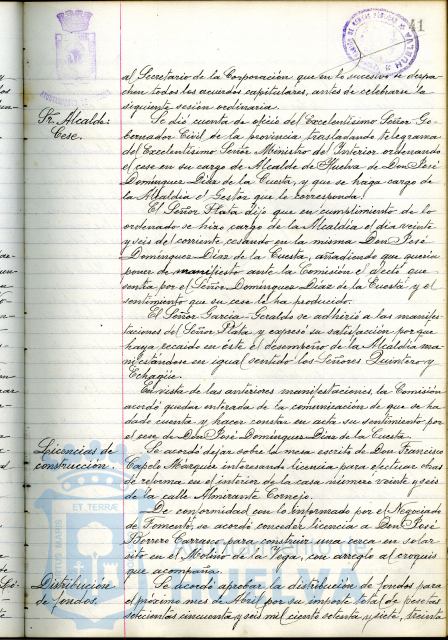 41
al Secretario de la Corporación que en lo sucesivo se despa-
chen todos los acuerdos capitulares, antes de celebrarse la
siguiente sesión ordinaria.
Sr. Alcalde:
Cese.
Se dió cuenta de oficio del Excelentísimo Señor Go-
bernador Civil de la provincia, trasladando telegrama
del Excelentísimo Señor Ministro del Interior ordenando
el cese en su cargo de Alcalde de Huelva de Don José
Domínguez Díaz de la Cuesta, y que se haga cargo de
la Alcaldía el Gestor que le corresponda.
El Señor Plata dijo que en cumplimiento de lo
ordenado se hizo cargo de la Alcaldía el día veinte
y seis del corriente cesando en la misma Don José
Domínguez Díaz de la Cuesta, añadiendo que quería
poner de manifiesto ante la Comisión el afecto que
sentía por el Señor Domínguez Díaz de la Cuesta y el
sentimiento que su cese le ha producido.
El Señor García-Geraldo se adhirió a las manifes-
taciones del Señor Plata y expresó su satisfacción porque
haya recaido en éste el desempeño de la Alcaldía ma-
nifestándose en igual sentido los Señores Quintero y
Echagüe.
En vista de las anteriores manifestaciones, la Comisión
acordó quedar enterada de la comunicación de que se ha
dado cuenta y hacer constar en acta su sentimiento por
el cese de Don José Domínguez Díaz de la Cuesta.
Licencias de
construcción.
Se acordó dejar sobre la mesa escrito de Don Francisco
Capelo Márquez interesando licencia para efectuar obras
de reforma en el interior de la casa número veinte y seis
de la calle Almirante Cornejo.
De conformidad con lo informado por el Negociado
de Fomento, se acordó conceder licencia a Don José
Borrero Carrasco para construir una cerca en solar
sito en el Molino de la Vega, con arreglo al croquis
que acompaña.
Distribución
de fondos.
Se acordó aprobar la distribución de fondos para
el próximo mes de Abril por su importe total de pesetas
seiscientas cincuenta y seis mil ciento setenta y siete, treinta
ET TERRÆ